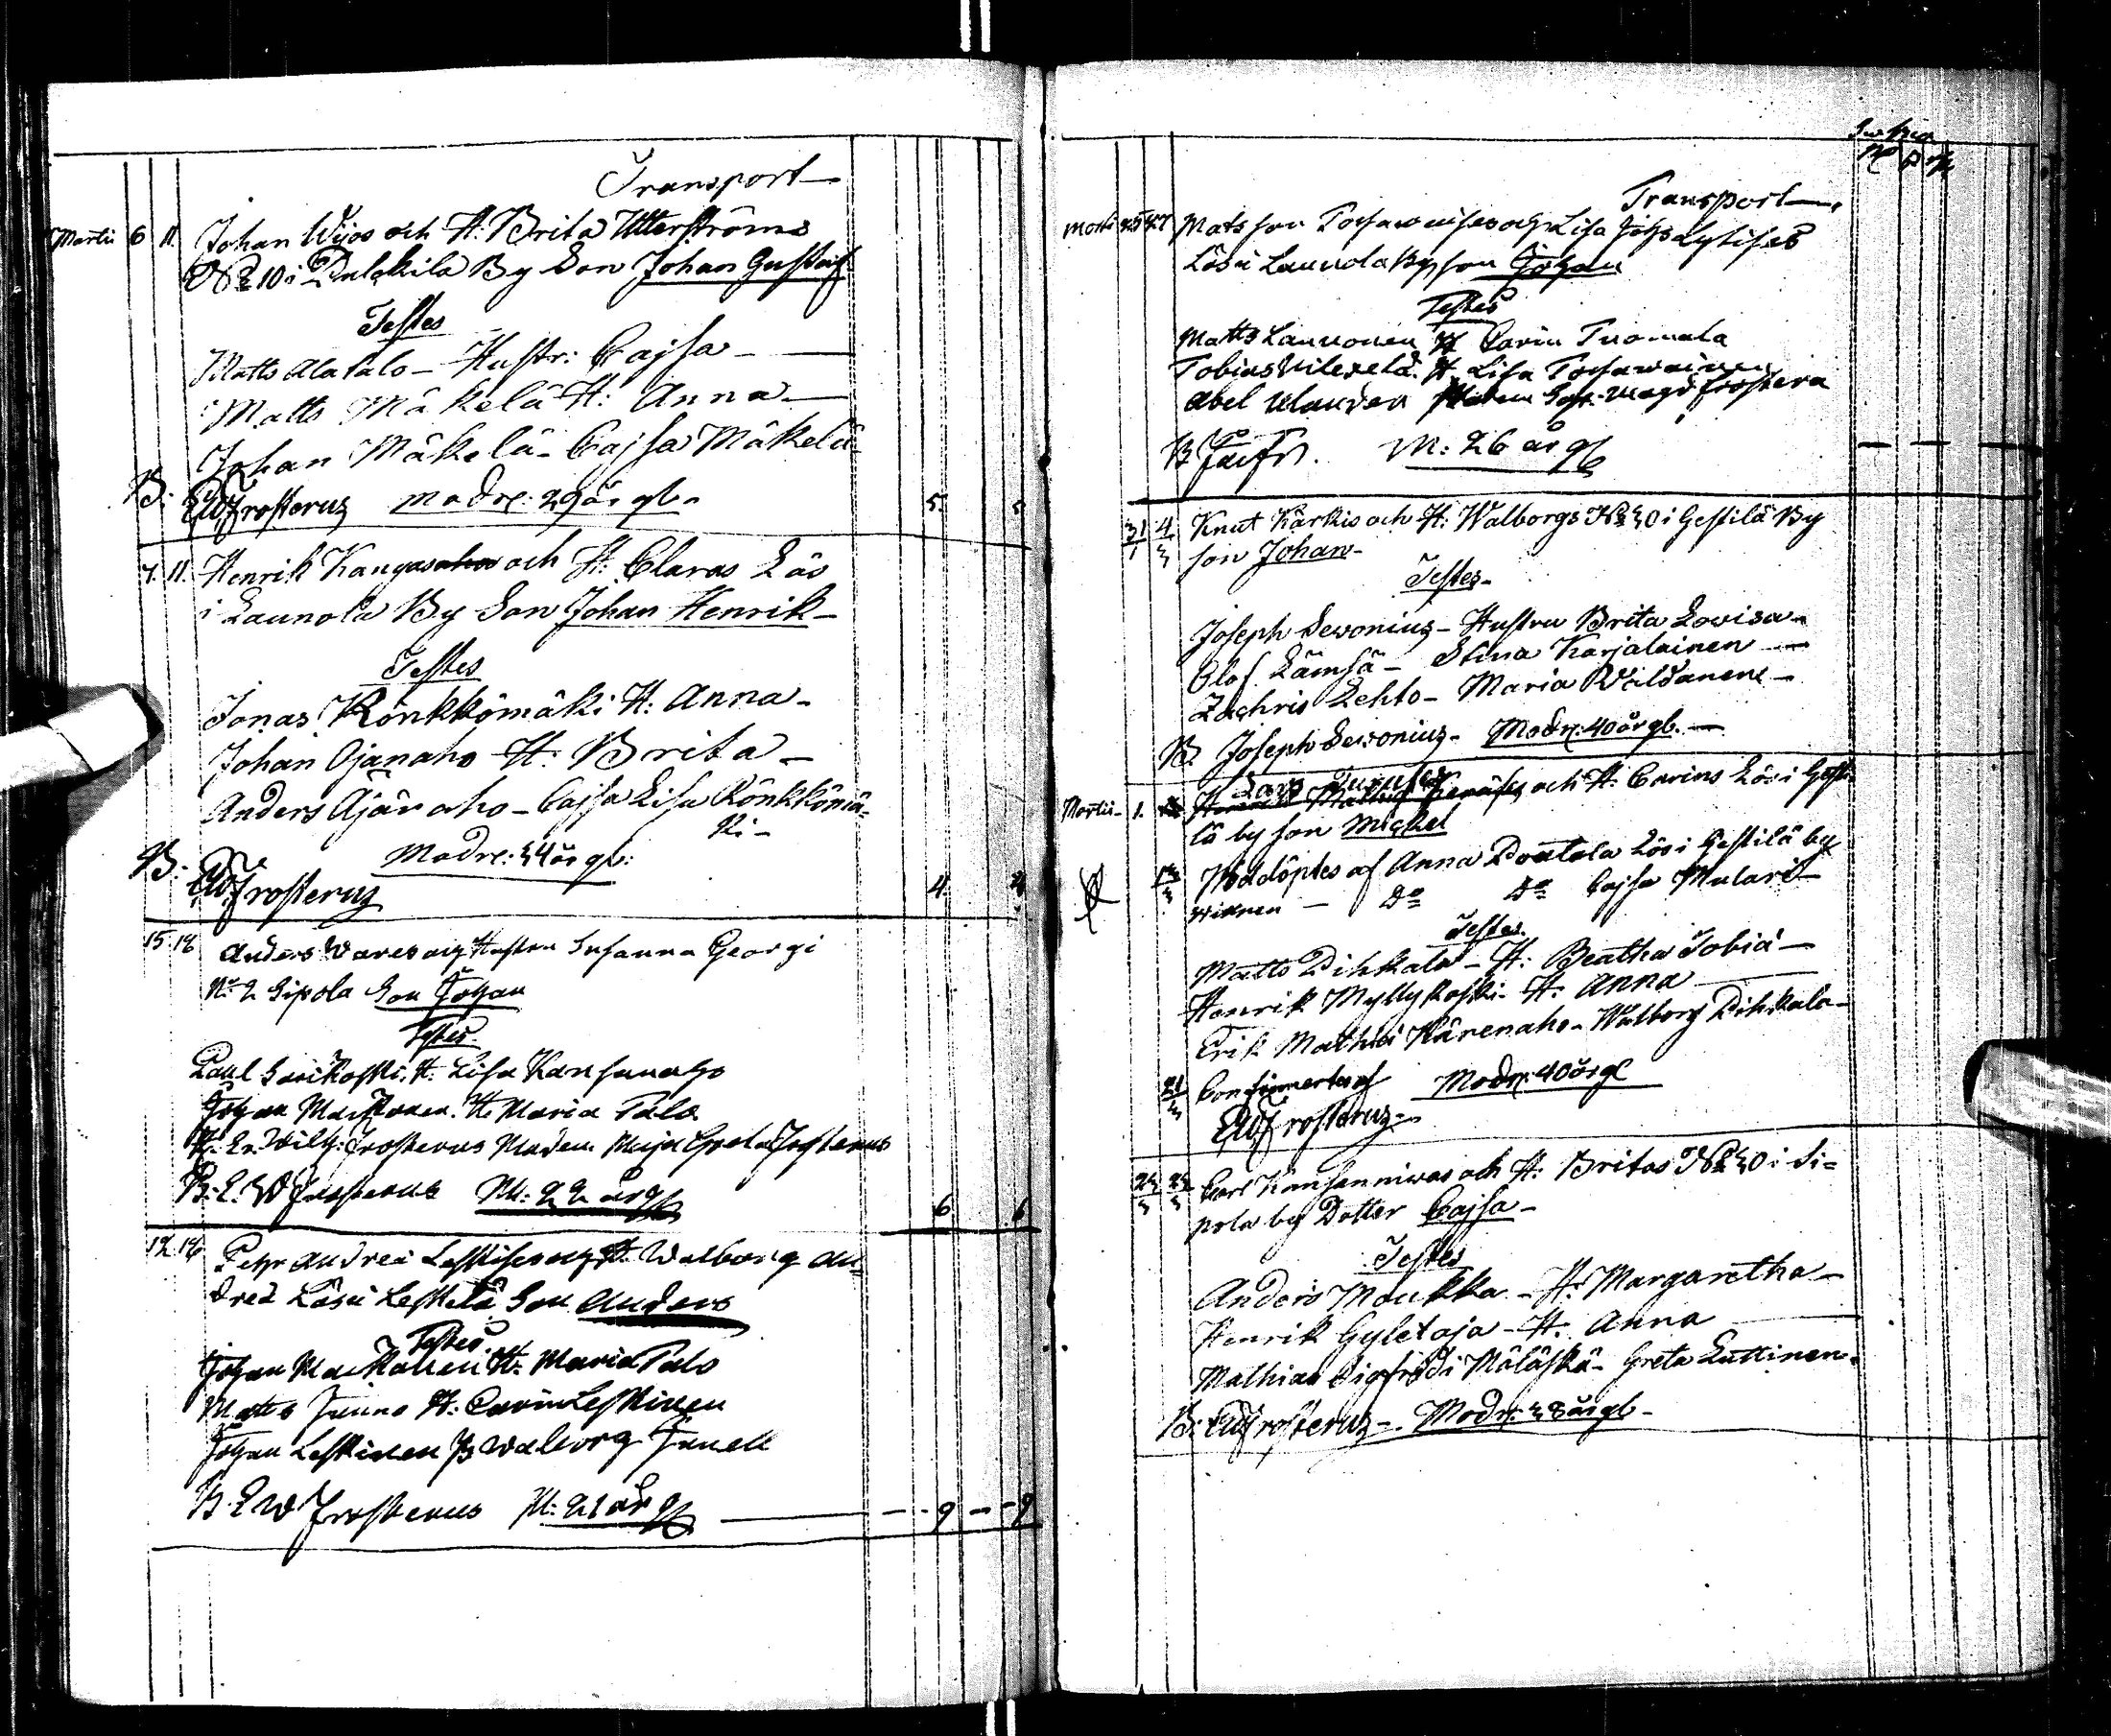 Transport
Martii 6 11. Johan Wijos och H: Brita Utterströms
N:o 10 i Pulckila By Son Johan Gustaf
Testes
Matts Alatalo - Hustr: Cajsa -
Matts Mäkelä H: Anna -
Johan Mäkelä - Cajsa Mäkelä
B: EWFrosterus Modr: 29 år gl. 5. 5
7. 11. Henrik Kangasahos och H: Claras Lös
i Launola By Son Johan Henrik -
Testes
Jonas Rönkkömäki H: Anna -
Johan Ojanaho H: Brita -
Anders Ajänaho - Cajsa Lisa Rönkkömä-
ki -
B: Modr: 34 år gl:
EWFrosterus 4. 4
15 18 Anders Wares och Hustru Susanna Georgi
N:o 2 Sipola Son Johan
Testes
Paul Sarikoski. H: Lisa Kansanaho
Johan Markkanen. H. Maria Talo
H: Er. Wilh: Frosterus Madem. Maja Greta Frosterus
B: E. W Frosterus M: 22 år gl 6 6
12 18 Pehr Andreæ Leskises och H: Walborg An-
dreæ Lös i Leskelä Son Anders
Testes
Johan Markkanen H: Maria Talo
Matts Junno H: Carin Leskinen
Johan Leskinen P Walborg Junell
B. E W Frosterus M: 21 år gl - - 9 - - 9
Transport
Marti 25 27 Mats son Tossawaises och Lisa Johs Lytises
Lös i Launola By son Johan
Testes
Matts Launonen H Carin Tuomala
Tobias Wilexelä. H Lisa Tossawainen
Abel Ulander Frostera
B M: 26 år gl
31/1 4/3 Knut Kärkis och H: Walborgs N:o 30 i Gestilä By
son Johan -
Testes -
Joseph Dewonius - Hustru Brita Lovisa -
Olof Lämsä - Stina Karjalainen -
Zachris Lehto - Maria Wäildanene -
B. Joseph Dewonius - Modr: 40 år gl. -
Martii - 1. Lars och H: Carins Lös i Gesti-
lä by son Michel
Nöddöptes af Anna Doutola Lös i Gestilä by
wittnen - D:o D:o Cajsa Mulari
Testes.
Matts Pihkala - H: Beatha Tobiæ -
Henrik Myllykoski - H: Anna
Erik Mathiæ Kärenaho - Walborg Pihkala -
21/3 Confirmertes af Modr: 40 år gl
EWFrosterus -
24/3 25/3 Carl Kansanniwas och H: Britas N:o 30 i Si=
pola by Dotter Cajsa -
Testes
Anders Moukka - H: Margaretha -
Henrik Gyletoja - H: Anna
Mathias Sigfridi Määttä - Greta Luttinen.
B: EWFrosterus - Modr: 38 år gl -